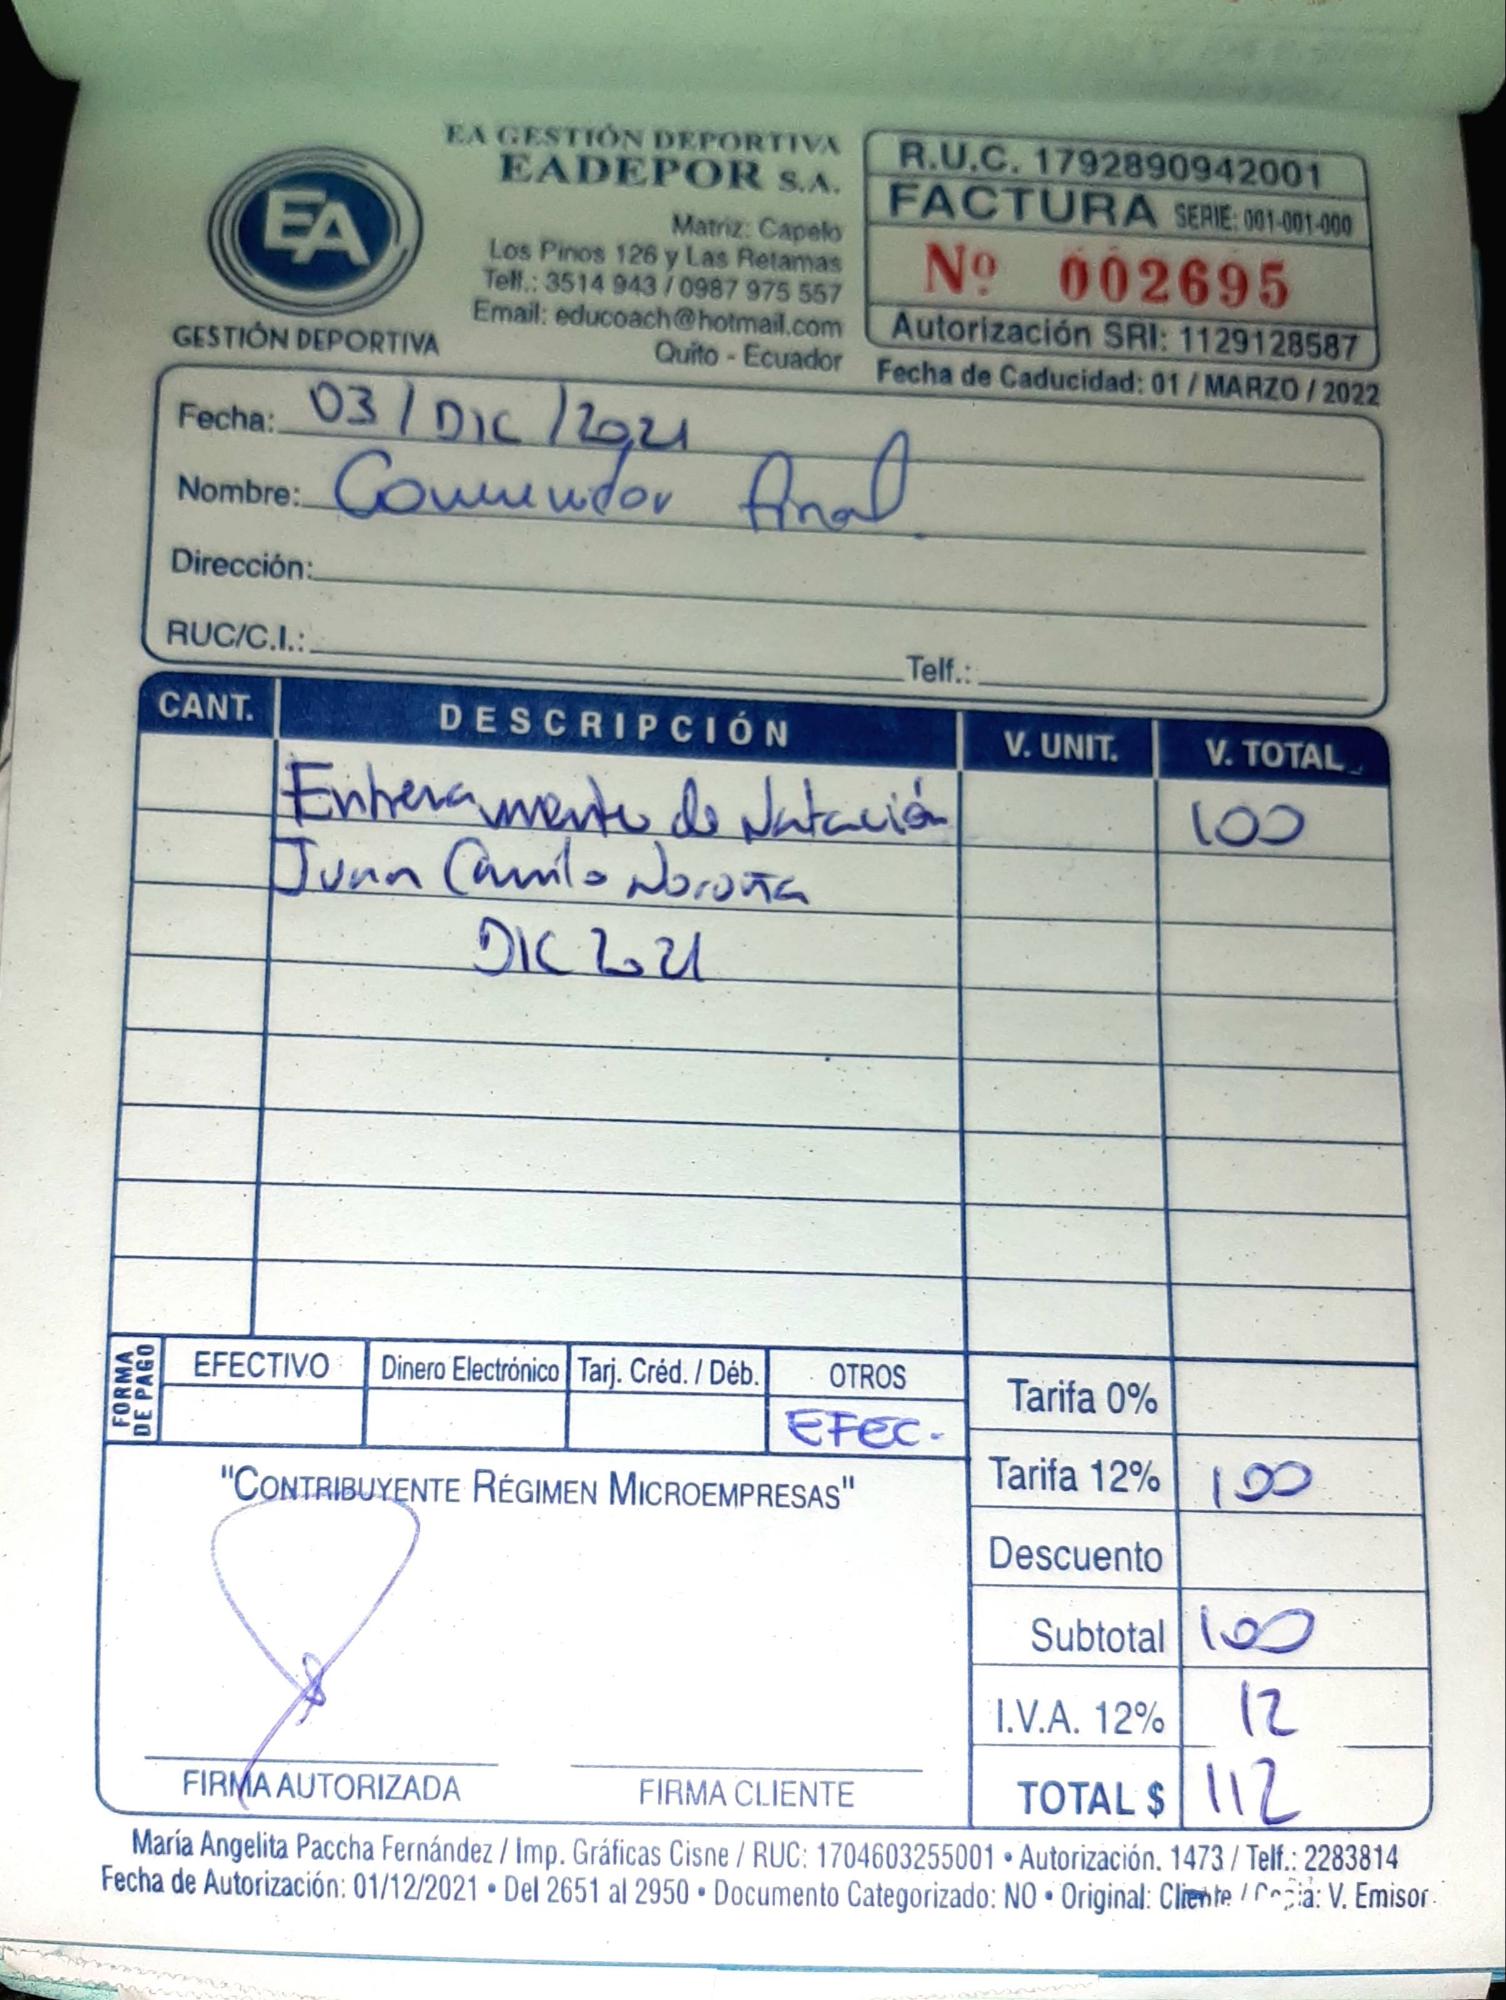 EA GESTIÓN DEPORTIVA
EADEPOR S.A.
EA
GESTIÓN DEPORTIVA
Matriz: Capelo
Los Pinos 126 y Las Retamas
Telf.: 3514 943 / 0987 975 557
Email: educoach@hotmail.com
Quito - Ecuador
R.U.C. 1792890942001
FACTURA SERIE: 001-001-000
Nº 002695
Autorización SRI: 1129128587
Fecha de Caducidad: 01 / MARZO / 2022
Fecha: 03 / DIC / 2021
Nombre: Consumidor final
Dirección:
RUC/C.I.: Telf.:
CANT. DESCRIPCIÓN V. UNIT. V. TOTAL
Entrenamiento de Natación 100
Juan Camilo Noroña
DIC 2021
FORMA DE PAGO
EFECTIVO Dinero Electrónico Tarj. Créd. / Déb. OTROS
EFEC.
Tarifa 0%
Tarifa 12% 100
Descuento
Subtotal 100
I.V.A. 12% 12
TOTAL $ 112
"CONTRIBUYENTE RÉGIMEN MICROEMPRESAS"
FIRMA AUTORIZADA FIRMA CLIENTE
María Angelita Paccha Fernández / Imp. Gráficas Cisne / RUC: 1704603255001 • Autorización. 1473 / Telf.: 2283814
Fecha de Autorización: 01/12/2021 • Del 2651 al 2950 • Documento Categorizado: NO • Original: Cliente / Copia: V. Emisor